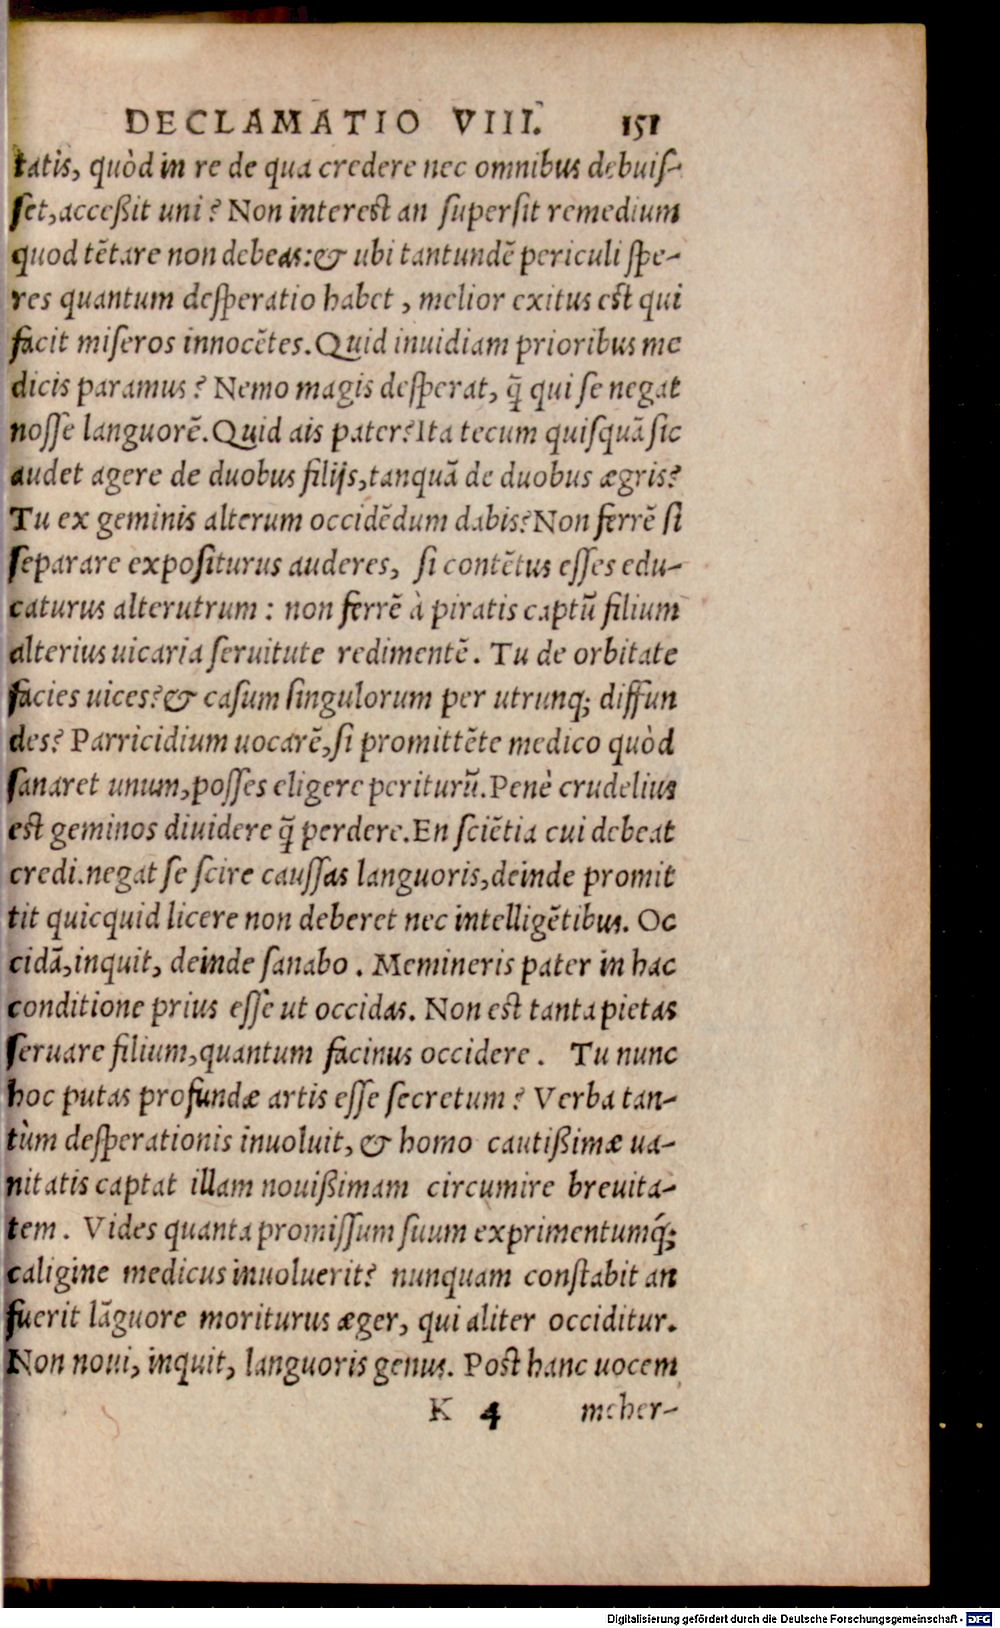 DECLAMATIO VIII. 151
tatis, quòd in re de qua credere nec omnibus debuiſ-
ſet, acceßit uni? Non interest an ſuperſit remedium
quod tẽtare non debeas: & ubi tantundẽ periculi ſpe-
res quantum deſperatio habet, melior exitus est qui
facit miſeros innocẽtes. Quid inuidiam prioribus me
dicis paramus? Nemo magis deſperat, q̃ qui ſe negat
noſſe languorẽ. Quid ais pater? Ita tecum quiſquã ſic
audet agere de duobus filijs, tanquã de duobus ægris?
Tu ex geminis alterum occidẽdum dabis? Non ferrẽ ſi
ſeparare expoſiturus auderes, ſi contẽtus eſſes edu-
caturus alterutrum: non ferrẽ à piratis captũ filium
alterius uicaria ſeruitute redimentẽ. Tu de orbitate
facies uices? & caſum ſingulorum per utrunq; diffun
des? Parricidium uocarẽ, ſi promittẽte medico quòd
ſanaret unum, poſſes eligere periturũ. Penè crudelius
est geminos diuidere q̃ perdere. En ſciẽtia cui debeat
credi. negat ſe ſcire cauſſas languoris, deinde promit
tit quicquid licere non deberet nec intelligẽtibus. Oc
cidã, inquit, deinde ſanabo. Memineris pater in hac
conditione prius eſſe ut occidas. Non est tanta pietas
ſeruare filium, quantum facinus occidere. Tu nunc
hoc putas profundæ artis eſſe ſecretum? Verba tan-
tùm deſperationis inuoluit, & homo cautißimæ ua-
nitatis captat illam nouißimam circumire breuita-
tem. Vides quanta promiſſum ſuum exprimentumq́;
caligine medicus inuoluerit? nunquam conſtabit an
fuerit lãguore moriturus æger, qui aliter occiditur.
Non noui, inquit, languoris genus. Post hanc uocem
K 4 meher-
Digitalisierung gefördert durch die Deutsche Forschungsgemeinschaft - DFG